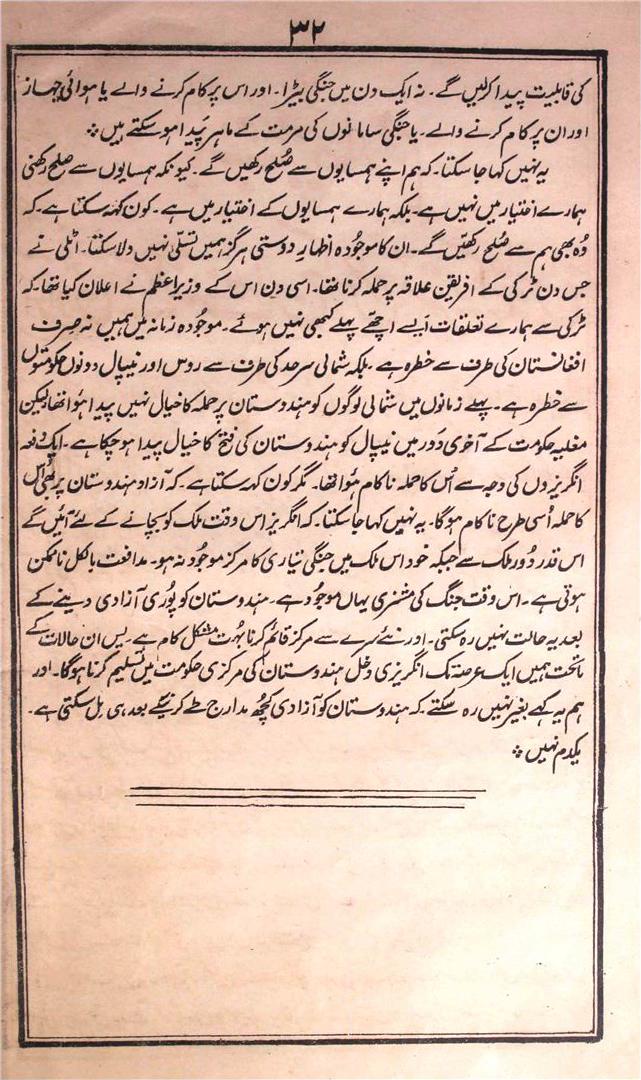 ۳۲
کی قابلیت پیدا کرلیں گے۔ نہ ایک دن میں جنگی بیڑا۔ اور اس پر کام کرنے والے یا ہوائی جہاز
اور ان پر کام کرنے والے۔ یا جنگی سامانوں کی مرمت کے ماہر پَیدا ہو سکتے ہیں ٭
یہ نہیں کہا جا سکتا۔ کہ ہم اپنے ہمسایوں سے صُلح رکھیں گے۔ کیونکہ ہمسایوں سے صلح رکھنی
ہمارے اختیار میں نہیں ہے۔ بلکہ ہمارے ہمسایوں کے اختیار میں ہے۔ کون کہہ سکتا ہے۔ کہ
وُہ بھی ہم سے صُلح رکھیں گے۔ ان کا موجُودہ اظہارِ دوستی ہرگز ہمیں تسلّی نہیں دلا سکتا۔ اٹلی نے
جس دن ٹرکی کے افریقن علاقہ پر حملہ کرنا تھا۔ اسی دن اس کے وزیراعظم نے اعلان کیا تھا۔ کہ
ٹرکی سے ہمارے تعلقات اَیسے اچھّے پہلے کبھی نہیں ہوئے۔ موجُودہ زمانہ میں ہمیں نہ صرف
افغانستان کی طرف سے خطرہ ہے۔ بلکہ شمالی سرحد کی طرف سے روس اور نیپال دونوں حکومتوں
سے خطرہ ہے۔ پہلے زمانوں میں شمالی لوگوں کو ہندوستان پر حملہ کا خیال نہیں پیدا ہوا تھا لیکن
مغلیہ حکومت کے آخری دَور میں نیپال کو ہندوستان کی فتح کا خیال پیدا ہو چکا ہے۔ ایک دفعہ
انگریزوں کی وجہ سے اُس کا حملہ ناکام ہوا تھا۔ مگر کون کہہ سکتا ہے۔ کہ آزاد ہندوستان پر بھی اُس
کا حملہ اُسی طرح ناکام ہوگا۔ یہ نہیں کہا جا سکتا۔ کہ انگریز اس وقت ملک کو بچانے کے لئے آئیں گے
اس قدر دُور ملک سے جبکہ خود اس ملک میں جنگی تیاری کا مرکز موجُود نہ ہو۔ مدافعت بالکل ناممکن
ہوتی ہے۔ اس وقت جنگ کی مشنری یہاں موجُود ہے۔ ہندوستان کو پُوری آزادی دینے کے
بعد یہ حالت نہیں رہ سکتی۔ اور نئے سرے سے مرکز قائم کرنا بہُت مشکل کام ہے۔ پس ان حالات کے
ماتحت ہمیں ایک عرصہ تک انگریزی دخل ہندوستان کی مرکزی حکومت میں تسلیم کرنا ہوگا۔ اور
ہم یہ کہے بغیر نہیں رہ سکتے۔ کہ ہندوستان کو آزادی کچھُ مدارج طے کرنیکے بعد ہی مل سکتی ہے۔
یکدم نہیں ٭